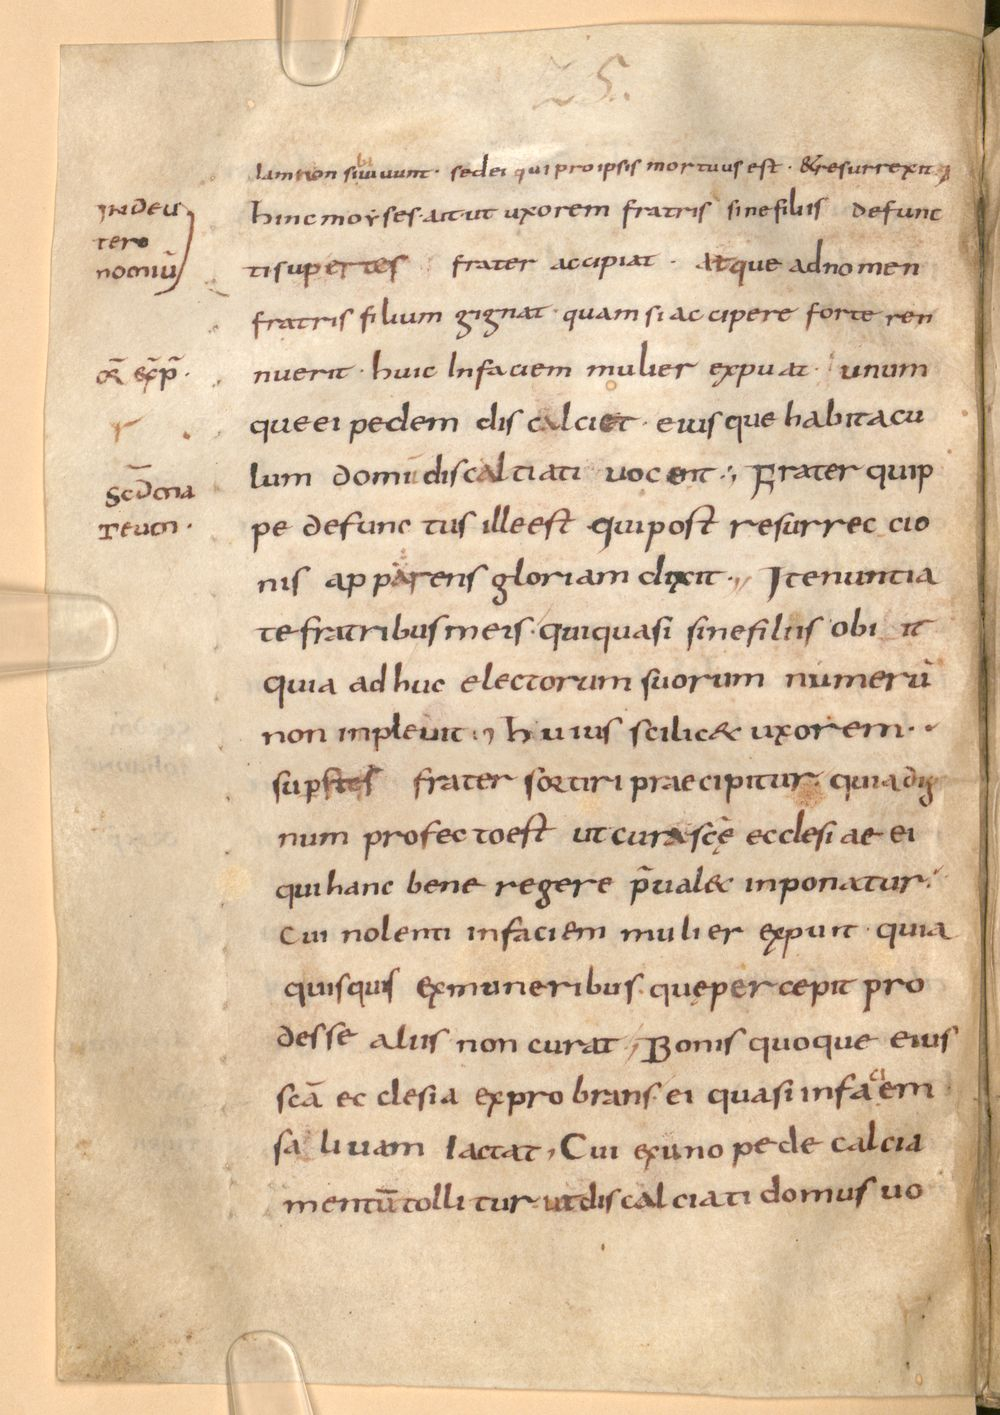 25.
Iam non sibi uiuunt · sed ei qui pro ipsis mortuus est · & resurrexit
In deu
tero
nomiū
hinc moyses · ait ut uxorem fratris sine filiis defunc
ti supertes frater accipiat · Atque ad nomen
fratris filium gignat · quam si accipere forte ren
nuerit · huic In faciem mulier expuat · unum
que ei pedem discalciet · eiusque habitacu
lum domū discaltiati uocent ·, Frater quip
Scdm ma
teum ·
pe defunctus ille est qui post resurreccio
nis apparens gloriam dixit ·,, Ite nuntia
te fratribus meis · qui quasi sine filiis obi it
quia adhuc electorum suorum numerū
non inpleuit ·, huius scilic& uxorem ·
sup̄stes frater sortiri praecipitur · quia dig
num profecto est ut cura scę̄ ecclesiae ei
qui hanc bene regere p̄ual& inponatur ·
Cui nolenti in faciem mulier expuit · quia
quisquis ex muneribus quę percepit pro
desse aliis non curat ,, Bonis quoque eius
scā ecclesia exprobrans · ei quasi in faciem
saliuam Iactat , Cui ex uno pede calcia
mentū tollitur · ut discalciati domus uo